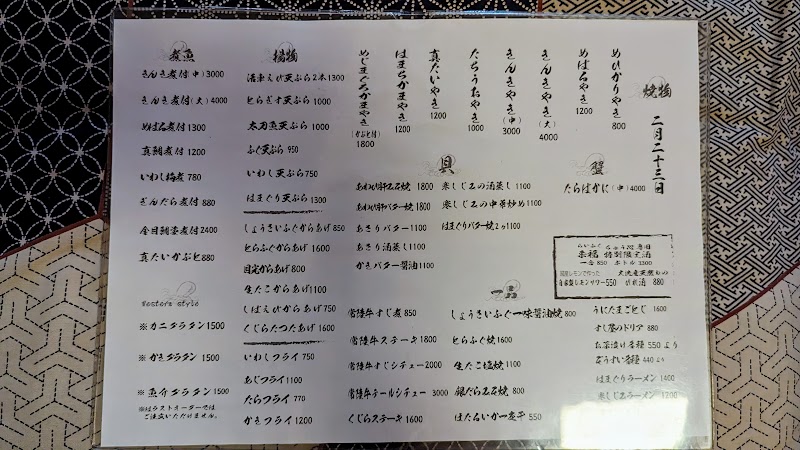 焼物
二月二十三日
めひかりやき 800
めばるやき 1200
きんきやき(大) 4000
きんきやき(中) 3000
たちうおやき 1000
真たいやき 1200
はまちかまやき 1200
めじまぐろかまやき (かぶと付) 1800
揚物
活車えび天ぷら2本1300
とらぎす天ぷら 1000
太刀魚天ぷら 1000
ふぐ天ぷら 950
いわし天ぷら750
はまぐり天ぷら1300
しょうさいふぐからあげ850
とらふぐからあげ 1600
目光からあげ 800
生たこからあげ1100
しばえびからあげ 750
くじらたつたあげ 1600
いわしフライ 750
あじフライ1100
たらフライ 770
かきフライ 1200
煮魚
きんき煮付(中) 3000
きんき煮付(大) 4000
めばる煮付 1300
真鯛煮付 1200
いわし梅煮 780
ぎんだら煮付 880
金目鯛姿煮付 2400
真たいかぶと 880
western style
※カニグラタン1500
※かきグラタン 1500
※魚介グラタン 1500
※はラストオーダーでは
ご注文いただけません。
蟹
たらばかに(中)4000
貝
あわび料石焼 1800
あわび料バター焼 1800
あさりバター 1100
あさり酒蒸し 1100
かきバター醤油 1100
来しじみの酒蒸し 1100
来しじみの中華炒め 1100
はまぐりバター焼2ヶ1100
らいふく ちゅう心専用
来福 特別限定酒
一合 850 ボトル 3300
国産レモンで作った
自家製レモンサワー550
大洗産天然もの
ひれ酒 880
常陸牛すじ煮 850
常陸牛ステーキ 1800
常陸牛すじシチュー2000
常陸牛テールシチュー 3000
くじらステーキ 1600
しょうさいふぐ一味醤油焼 800
とらふぐ焼 1600
生たこ塩焼 1100
銀だら石焼 800
ほたるいか一夜干 550
うにたまごとじ 1600
すし屋のドリア 880
お茶漬け各種 550より
ぞうすい各種 440より
はまぐりラーメン 1400
来しじみラーメン 1200